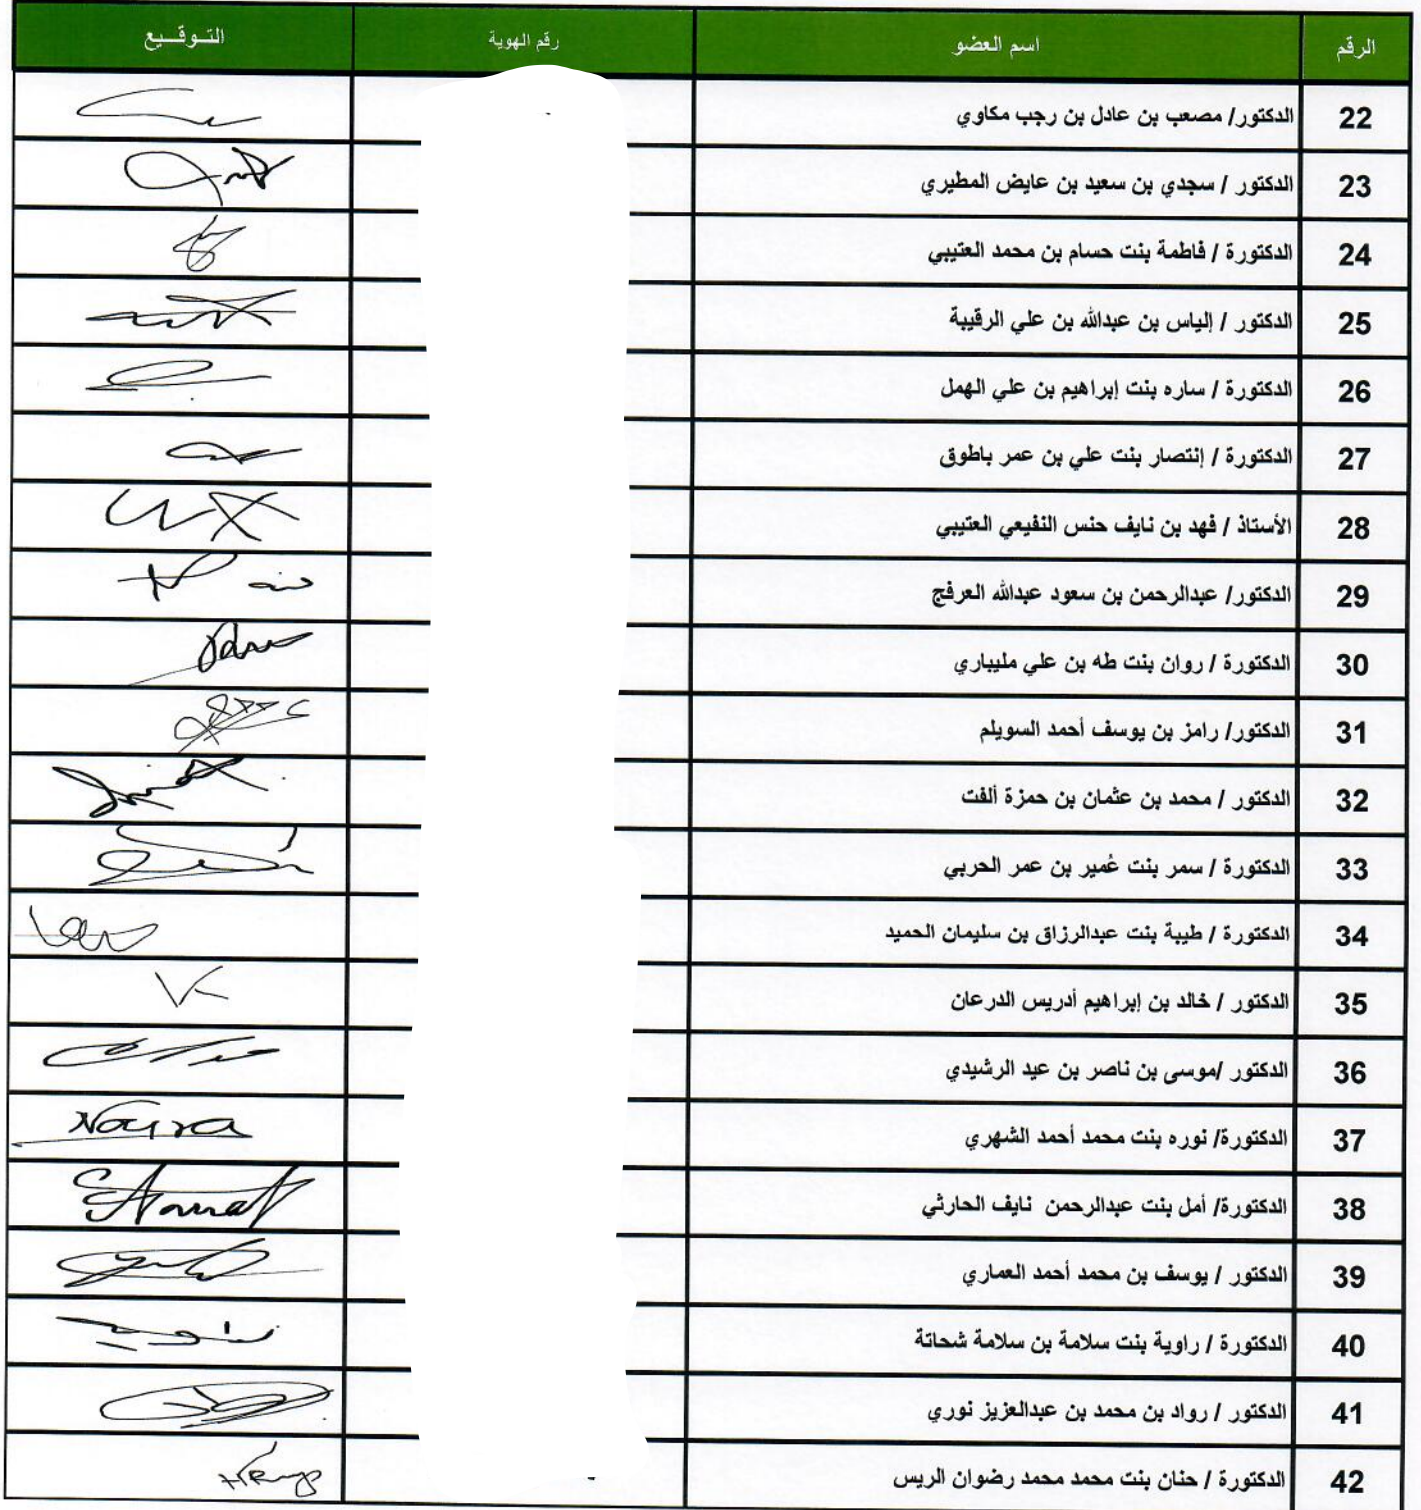 الرقم اسم العضو رقم الهوية التـوقـيـع
22 الدكتور/ مصعب بن عادل بن رجب مكاوي
23 الدكتور / سجدي بن سعيد بن عايض المطيري
24 الدكتورة / فاطمة بنت حسام بن محمد العتيبي
25 الدكتور / إلياس بن عبدالله بن علي الرقيبة
26 الدكتورة / ساره بنت إبراهيم بن علي الهمل
27 الدكتورة / إنتصار بنت علي بن عمر باطوق
28 الأستاذ / فهد بن نايف حنس النفيعي العتيبي
29 الدكتور/ عبدالرحمن بن سعود عبدالله العرفج
30 الدكتورة / روان بنت طه بن علي مليباري
31 الدكتور/ رامز بن يوسف أحمد السويلم
32 الدكتور / محمد بن عثمان بن حمزة ألفت
33 الدكتورة / سمر بنت عُمير بن عمر الحربي
34 الدكتورة / طيبة بنت عبدالرزاق بن سليمان الحميد
35 الدكتور / خالد بن إبراهيم أدريس الدرعان
36 الدكتور /موسى بن ناصر بن عيد الرشيدي
37 الدكتورة/ نوره بنت محمد أحمد الشهري Noura
38 الدكتورة/ أمل بنت عبدالرحمن نايف الحارثي
39 الدكتور / يوسف بن محمد أحمد العماري
40 الدكتورة / راوية بنت سلامة بن سلامة شحاتة
41 الدكتور / رواد بن محمد بن عبدالعزيز نوري
42 الدكتورة / حنان بنت محمد محمد رضوان الريس